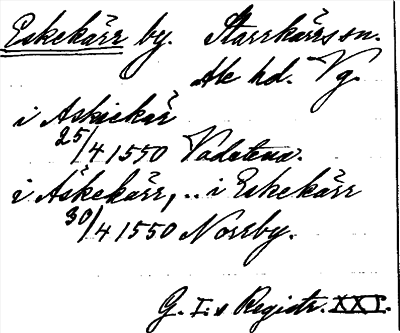 Eskekärr by. Starrkärrs sn.
Ale hd. Vg.
i Askiekär
25/4 1550 Vadstena.
i Äskekärr, .. i Eskekärr
30/4 1550 Norrby.
G. I:s Registr. XXI.